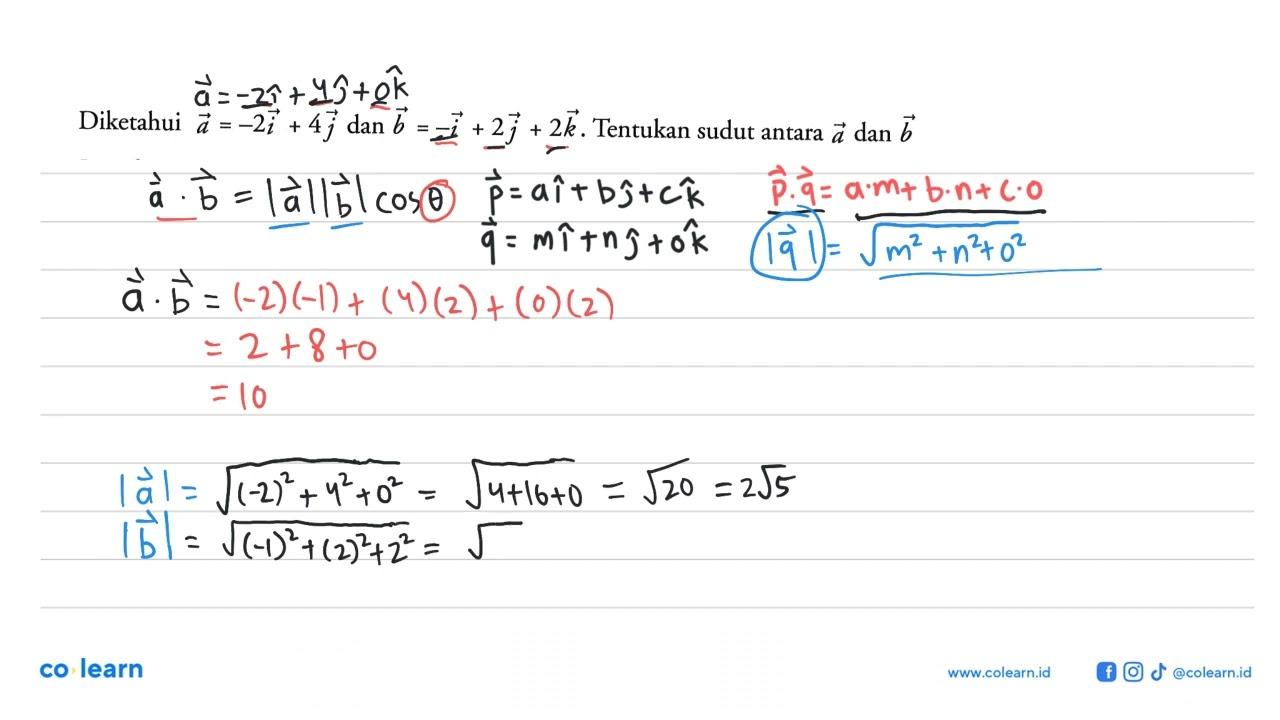 a⃗ = -2î + 4ĵ + 0k̂
Diketahui a⃗ = –2i⃗ + 4j⃗ dan b⃗ = –i⃗ + 2j⃗ + 2k⃗. Tentukan sudut antara a⃗ dan b⃗
a⃗ · b⃗ = |a⃗||b⃗| cos θ
p⃗ = aî + bĵ + ck̂
q⃗ = mî + nĵ + ok̂
p⃗ · q⃗ = a·m + b·n + c·o
|q⃗| = √(m² + n² + o²)
a⃗ · b⃗ = (-2)(-1) + (4)(2) + (0)(2)
= 2 + 8 + 0
= 10
|a⃗| = √((-2)² + 4² + 0²) = √(4+16+0) = √20 = 2√5
|b⃗| = √((-1)² + (2)² + 2²) = √
co learn
www.colearn.id
@colearn.id